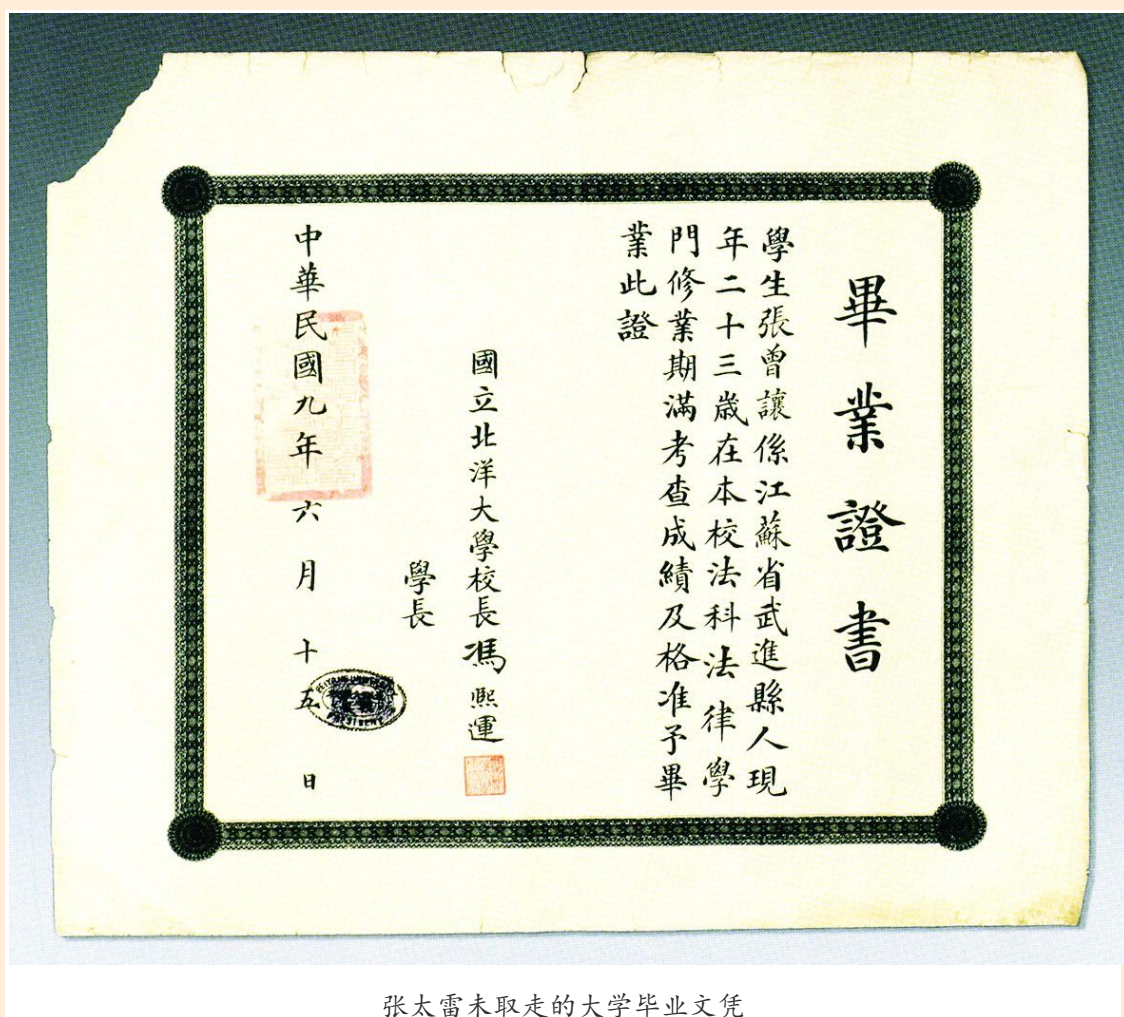 畢業證書
學生張曾讓係江蘇省武進縣人現
年二十三歲在本校法科法律學
門修業期滿考查成績及格准予畢
業此證
國立北洋大學校長馮熙運
學長
中華民國九年六月十五日
张太雷未取走的大学毕业文凭